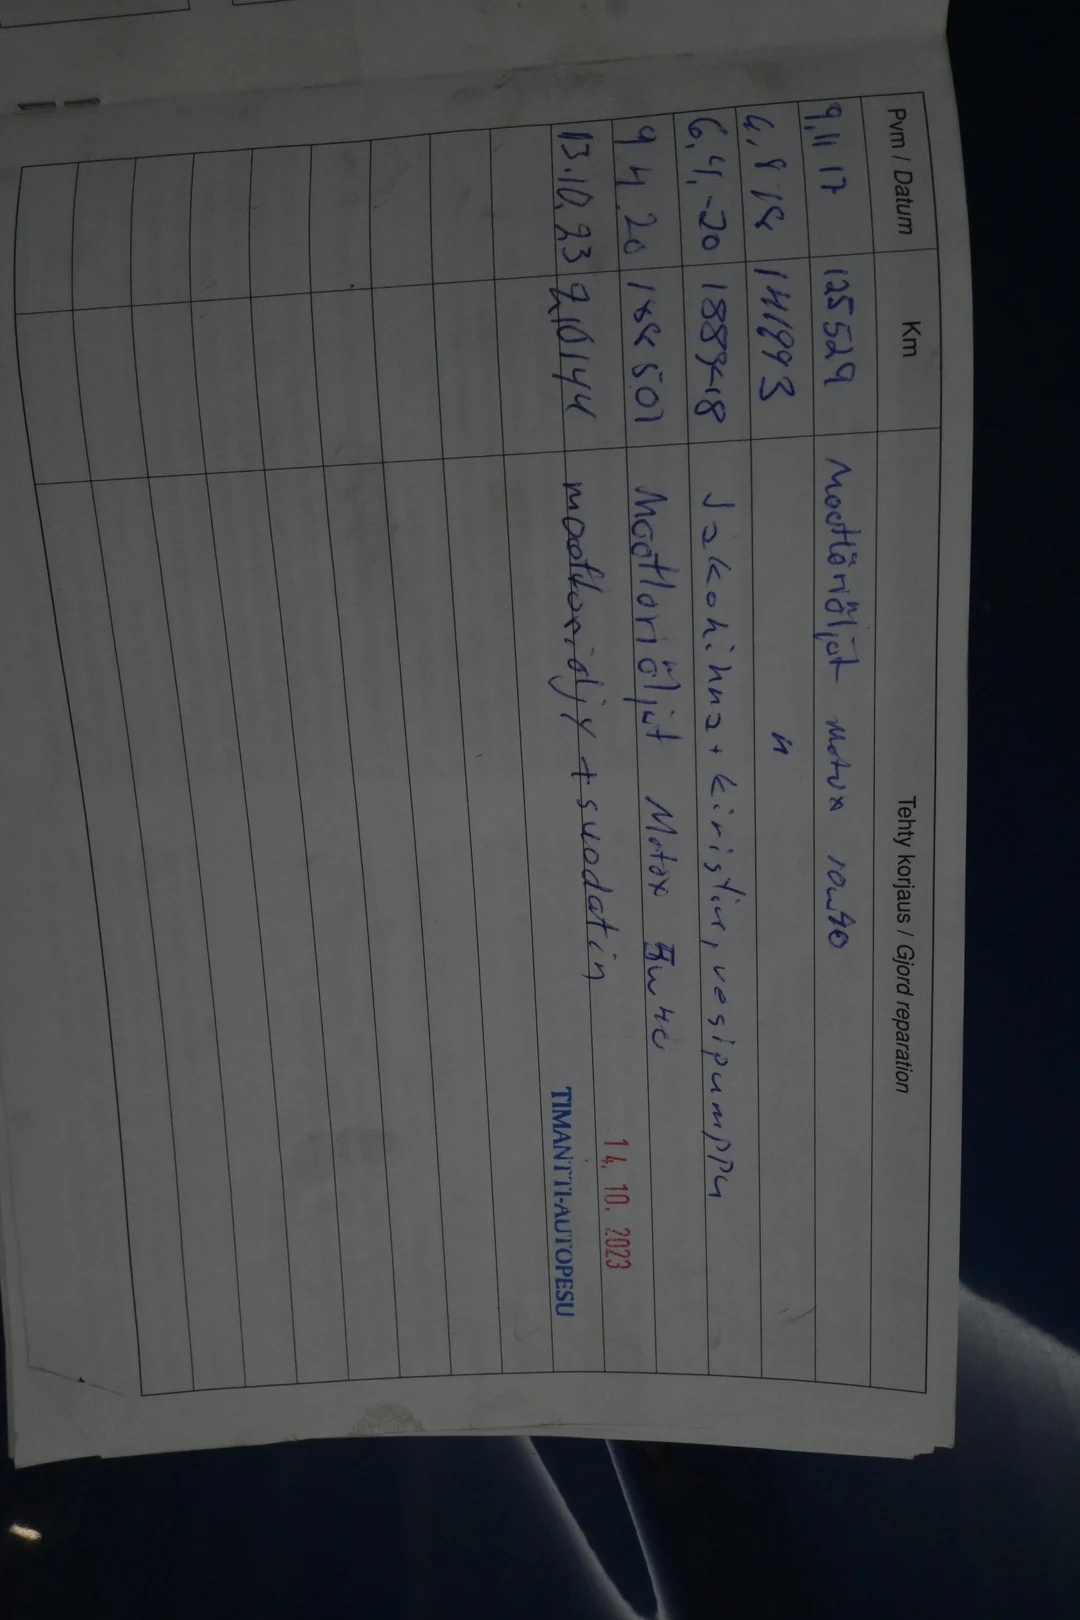 Pvm / Datum Km Tehty korjaus / Gjord reparation
9.11 17 125529 Moottoriöljyt Motux 10w40
4.9 18 141993 "
6.4.-20 188918 Jakohihna + kiristin, vesipumppu
9 4 20 188501 Moottoriöljyt Motox 5w40
14. 10. 2023
13.10.23 210144 moottoriöljy + suodatin
TIMANTTI-AUTOPESU